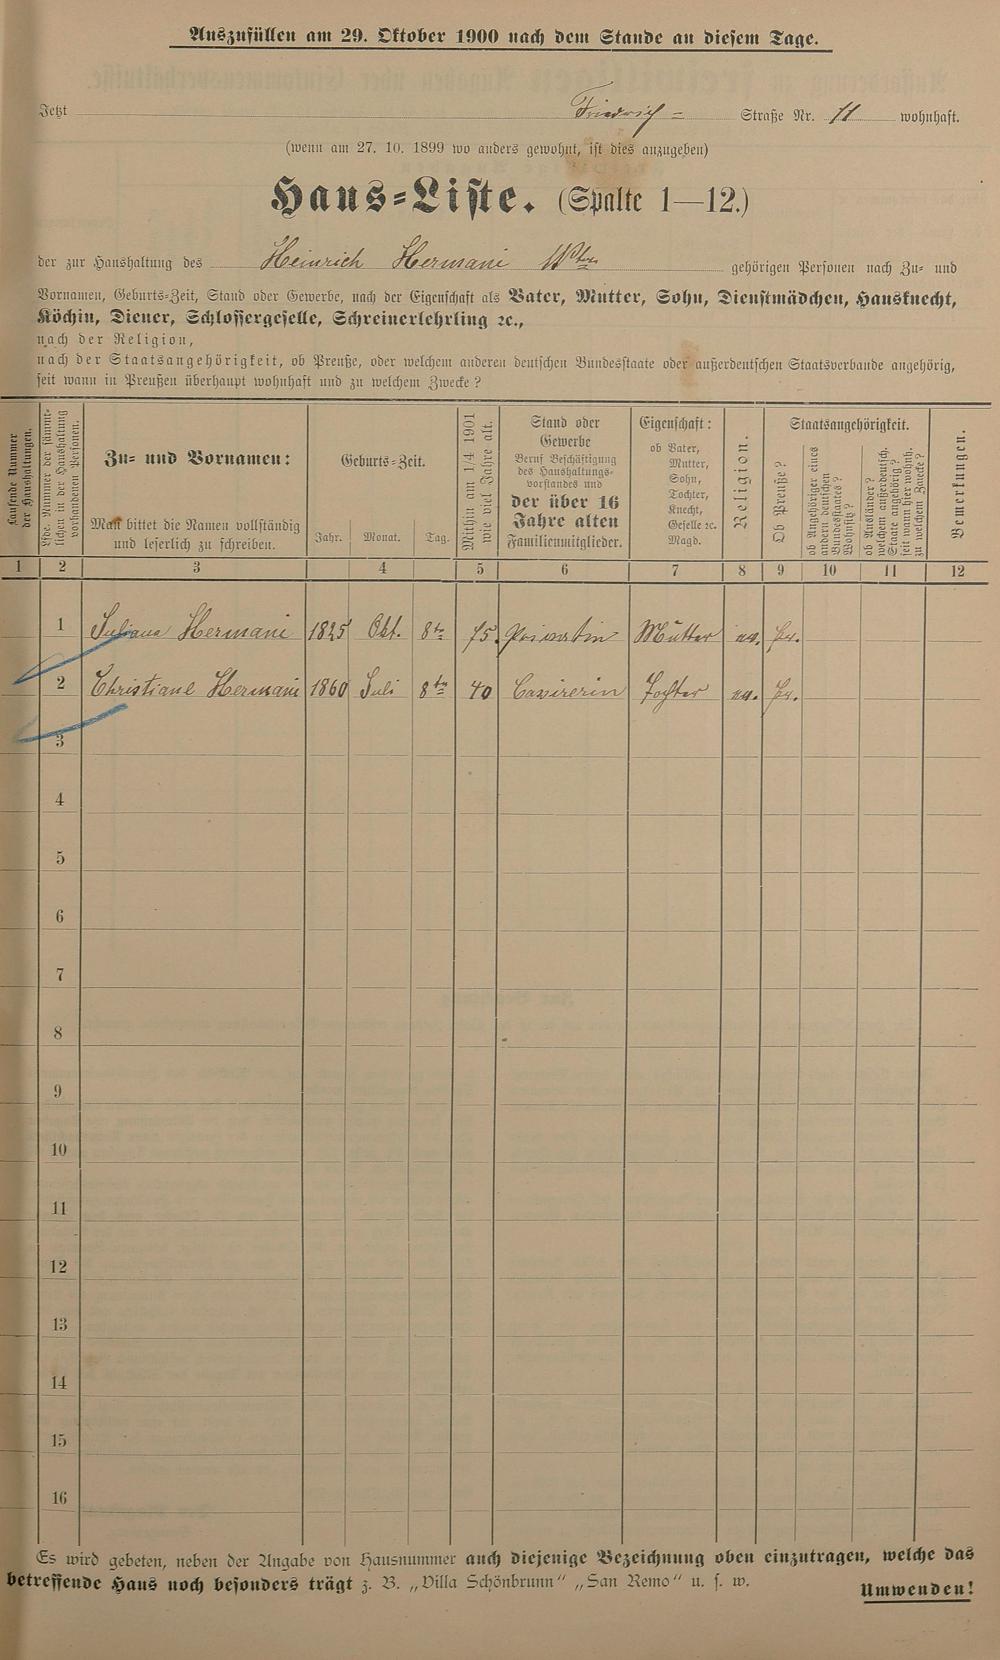 Auszufüllen am 29. Oktober 1900 nach dem Stande an diesem Tage.
Jetzt Friedrich= Straße Nr. 11 wohnhaft.
(wenn am 27. 10. 1899 wo anders gewohnt, ist dies anzugeben)
Haus=Liste. (Spalte 1—12.)
der zur Haushaltung des Heinrich Hermani Wtw gehörigen Personen nach Zu= und
Vornamen, Geburts=Zeit, Stand oder Gewerbe, nach der Eigenschaft als Vater, Mutter, Sohn, Dienstmädchen, Hausknecht,
Köchin, Diener, Schlossergeselle, Schreinerlehrling ꝛc.,
nach der Religion,
nach der Staatsangehörigkeit, ob Preuße, oder welchem anderen deutschen Bundesstaate oder außerdeutschen Staatsverbande angehörig,
seit wann in Preußen überhaupt wohnhaft und zu welchem Zwecke?
Laufende Nummer
der Haushaltungen.
Lfde. Nummer der sämmt=
lichen in der Haushaltung
vorhandenen Personen.
Zu= und Vornamen:
Man bittet die Namen vollständig
und leserlich zu schreiben.
Geburts=Zeit.
Jahr. Monat. Tag.
Mithin am 1/4 1901
wie viel Jahre alt.
Stand oder
Gewerbe
Beruf Beschäftigung
des Haushaltungs-
vorstandes und
der über 16
Jahre alten
Familienmitglieder.
Eigenschaft:
ob Vater,
Mutter,
Sohn,
Tochter,
Knecht,
Geselle ꝛc.
Magd.
Religion.
Staatsangehörigkeit.
Ob Preuße?
ob Angehöriger eines
andern deutschen
Bundesstaates?
Wohnsitz?
ob Ausländer?
welchem außerdeutsch.
Staate angehörig?
seit wann hier wohnh.
zu welchem Zwecke?
Bemerkungen.
1 2 3 4 5 6 7 8 9 10 11 12
1 Juliana Hermani 1825 Okt. 8te 75. Mutter ev. Pr.
2 Christiane Hermani 1860 Juli 8te 40 Tochter ev. Pr.
3
4
5
6
7
8
9
10
11
12
13
14
15
16
Es wird gebeten, neben der Angabe von Hausnummer auch diejenige Bezeichnung oben einzutragen, welche das
betreffende Haus noch besonders trägt z. B. „Villa Schönbrunn“ „San Remo“ u. s. w.
Umwenden!